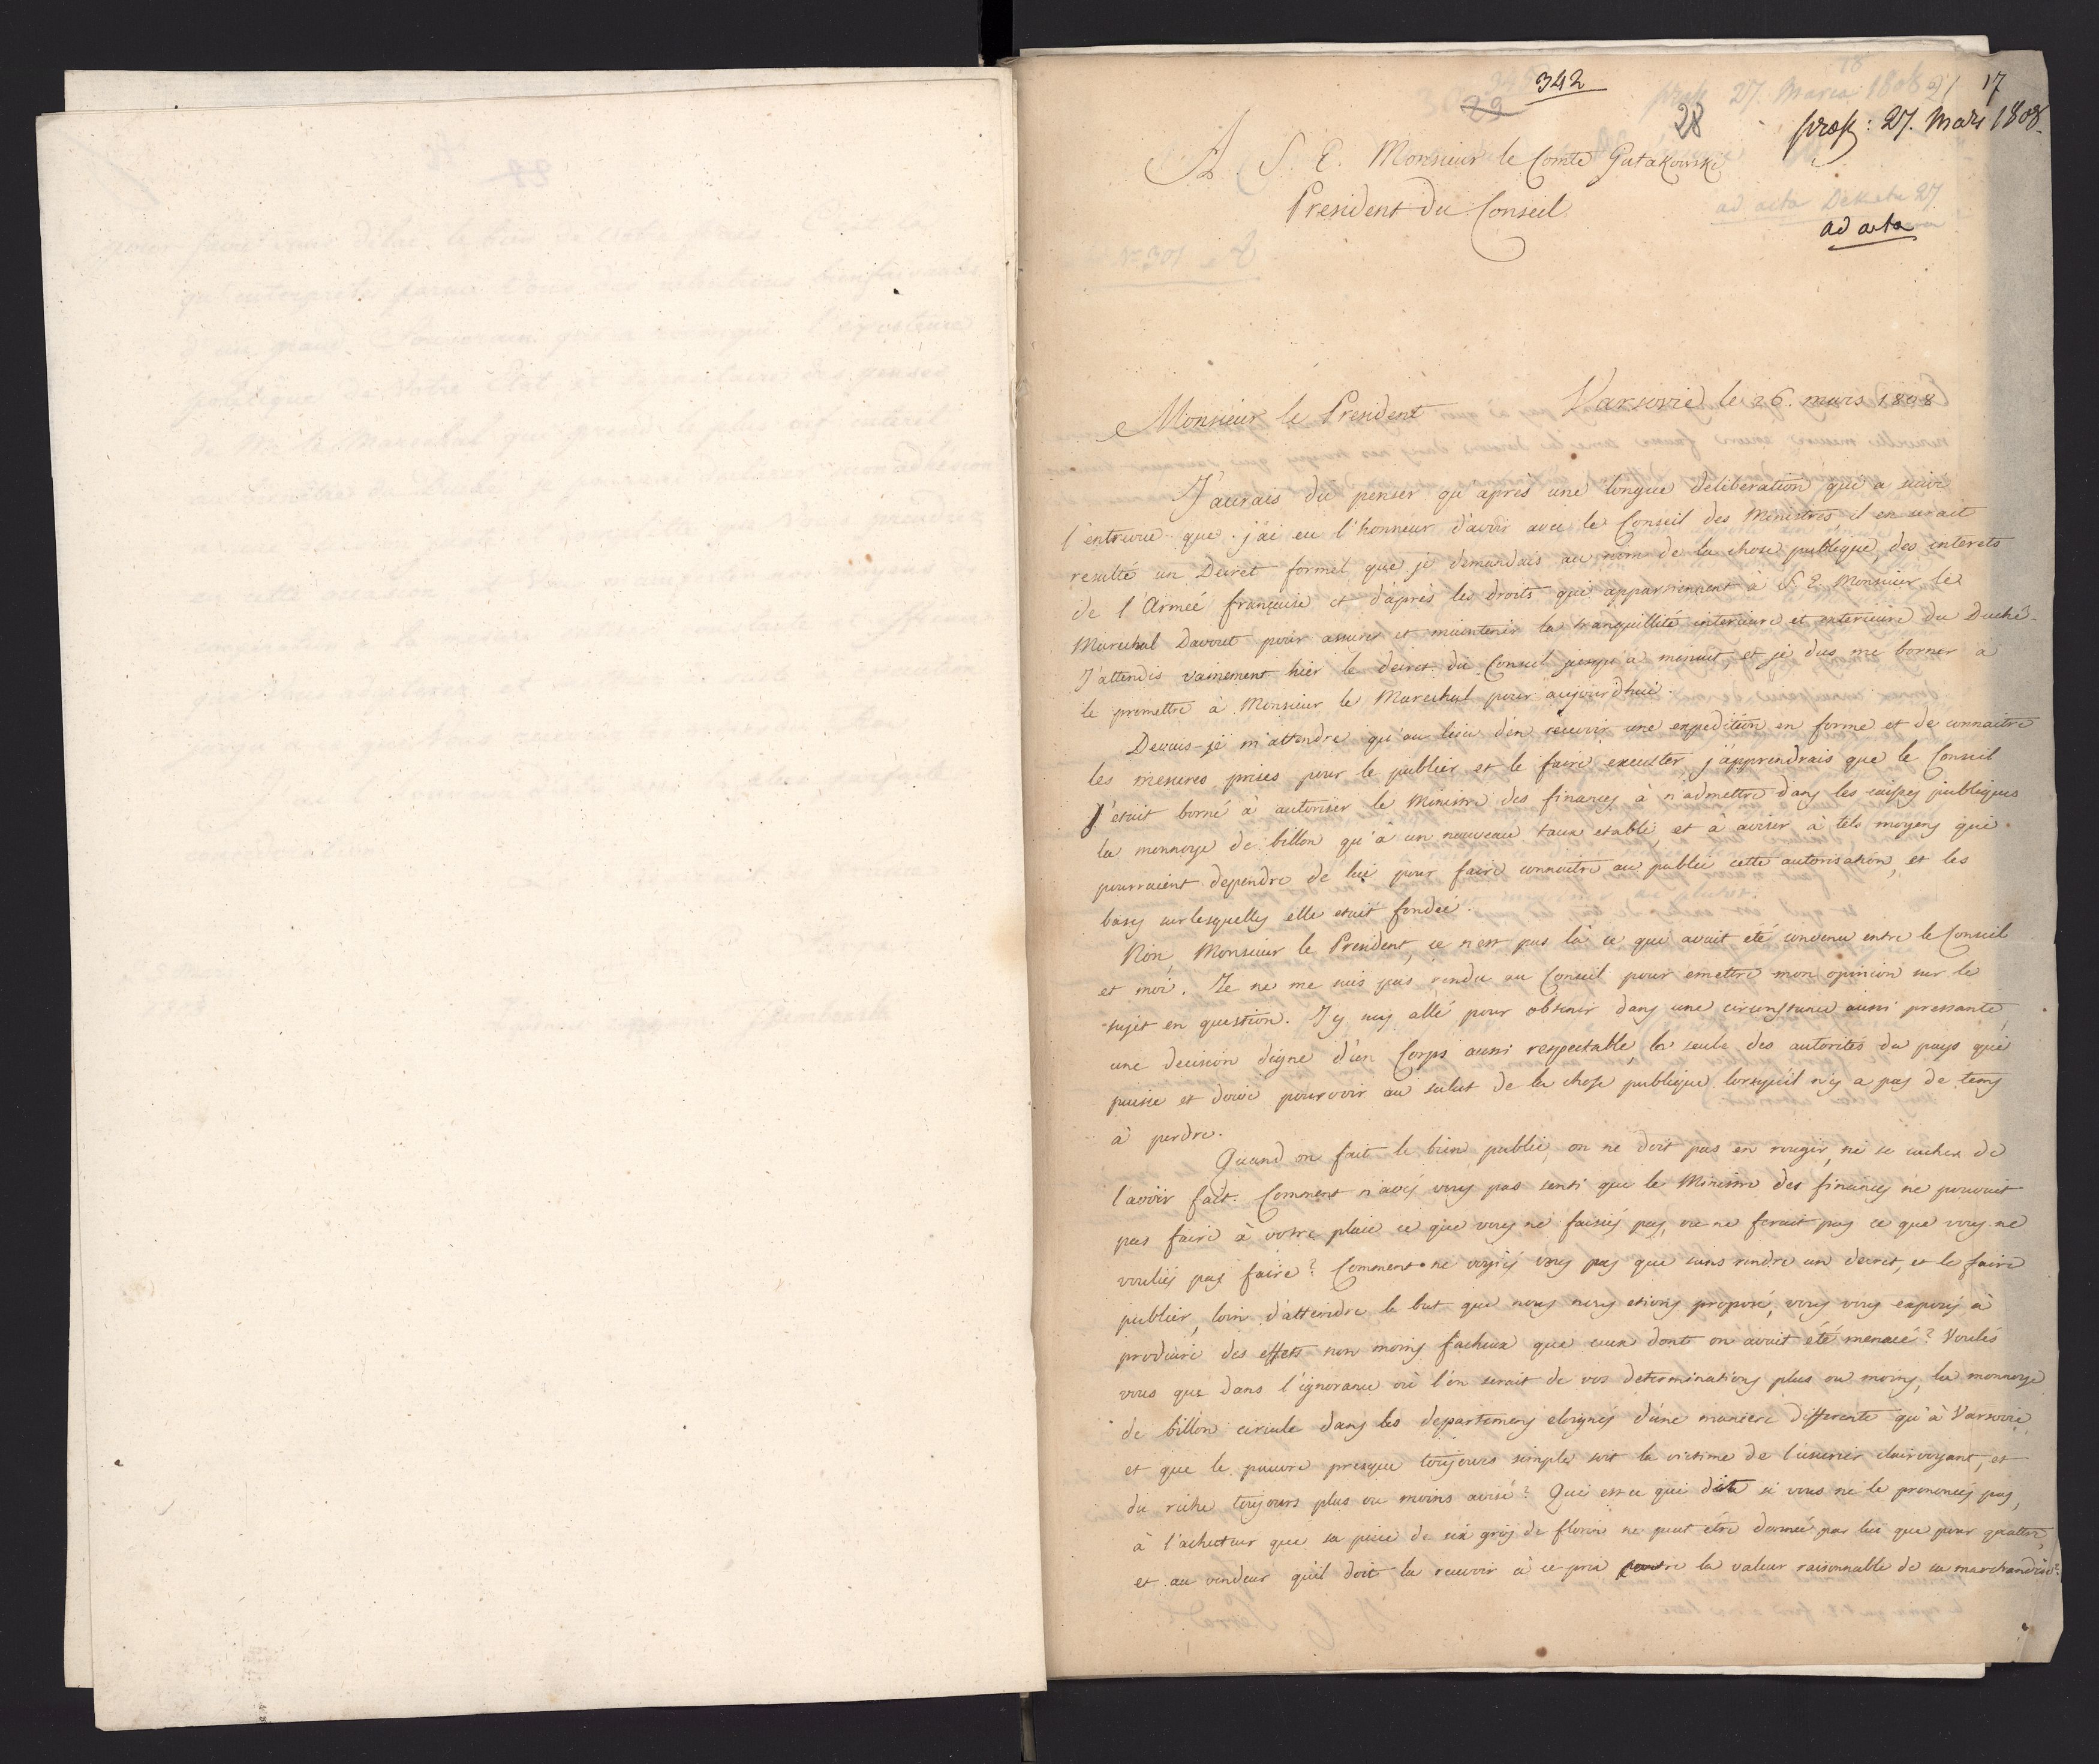 342
29
28
17
pros: 27. Mars 1808.
A S. E. Monsieur le Comte Gutakowski
President du Conseil
ad acta
Varsovie le 26. mars 1808
Monsieur le President
J'aurais du penser qu'apres une longue deliberation qui a suivi
l'entrevue que j'ai eu l'honneur d'avoir avec le Conseil des Ministres, il en serait
resulté un Decret formel que je demandais au nom de la chose publique, des interets
de l'Armée française et d'après les droits qui appartiennent à S. E. Monsieur le
Marechal Davout pour assurer et maintenir la tranquillité interieure et exterieure du Duché.
J'attendis vainement hier le decret du Conseil jusqu'à minuit, et je dus me borner a
le promettre à Monsieur le Marechal pour aujourd'hui.
Devais-je m'attendre qu'au lieu d'en recevoir une expedition en forme et de connaitre
les mesures prises pour le publier et le faire executer j'apprendrais que le Conseil
s'etait borné à autoriser le Ministre des finances à n'admettre dans les caisses publiques
la monnoye de billon qu'à un nouveau taux etabli, et à aviser à tels moyens qui
pourraient dependre de lui pour faire connaitre au public cette autorisation, et les
bases sur lesquelles elle etait fondée.
Non, Monsieur le President, ce n'est pas là ce qui avait eté convenu entre le Conseil
et moi. Je ne me suis pas rendu au Conseil pour emettre mon opinion sur le
sujet en question. J'y suis allé pour obtenir dans une circonstance aussi pressante,
une decision digne d'un Corps aussi respectable, la seule des autorités du pays qui
puisse et doive pourvoir au salut de la chose publique lorsqu'il n'y a pas de tems
à perdre.
Quand on fait le bien public, on ne doit pas en rougir, ni se cacher de
l'avoir fait. Comment n'avés vous pas senti que le Ministre des finances ne pouvait
pas faire à votre place ce que vous ne faisiés pas, ou ne ferait pas ce que vous ne
vouliés pas faire? Comment ne voyiés vous pas que sans rendre un decret, et le faire
publier, loin d'atteindre le but que nous nous etions proposé, vous vous exposés à
produire des effets non moins facheux que ceux dont on avait été menacé? Voulés
vous que dans l'ignorance où l'on serait de vos determinations plus ou moins, la monnoye
de billon circule dans les departemens eloignés d'une maniere differente qu'à Varsovie,
et que le pauvre presque toujours simple soit la victime de l'usurier clairvoyant, et
du riche toujours plus ou moins avisé? Qui est ce qui dite si vous ne le prononcés pas,
à l'acheteur que sa piece de six gros de florin ne peut etre donnée par lui que pour quattre,
et au vendeur qu'il doit la recevoir à ce prix contre la valeur raisonnable de sa marchandise?